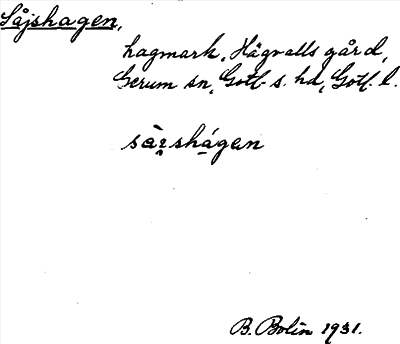 Såjshagen,
hagmark, Hägvalls gård,
Gerum sn, Gotl. s. hd, Gotl. l.
sàɪ̯shágen
B. Bolin 1931.